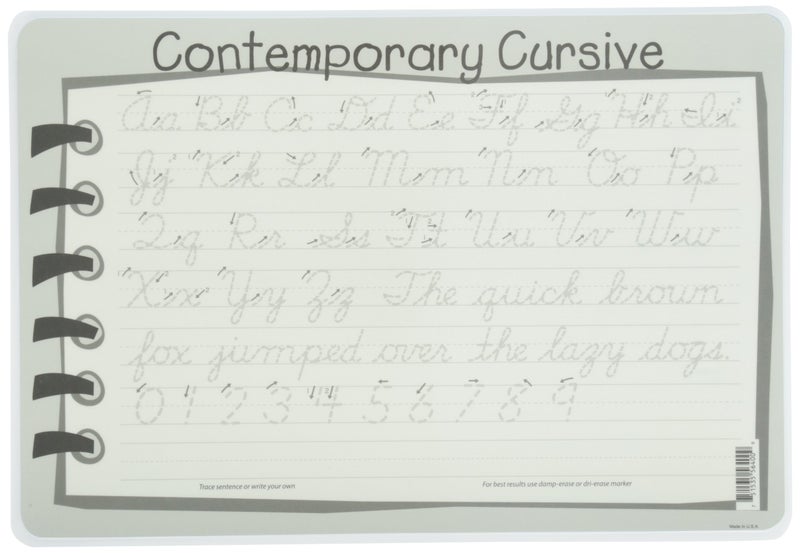 Contemporary Cursive
Aa Bb Cc Dd Ee Ff Gg Hh Ii
Jj Kk Ll Mm Nn Oo Pp
Qq Rr Ss Tt Uu Vv Ww
Xx Yy Zz The quick brown
fox jumped over the lazy dogs.
0 1 2 3 4 5 6 7 8 9
Trace sentence or write your own
For best results use damp-erase or dri-erase marker
Made in U.S.A.